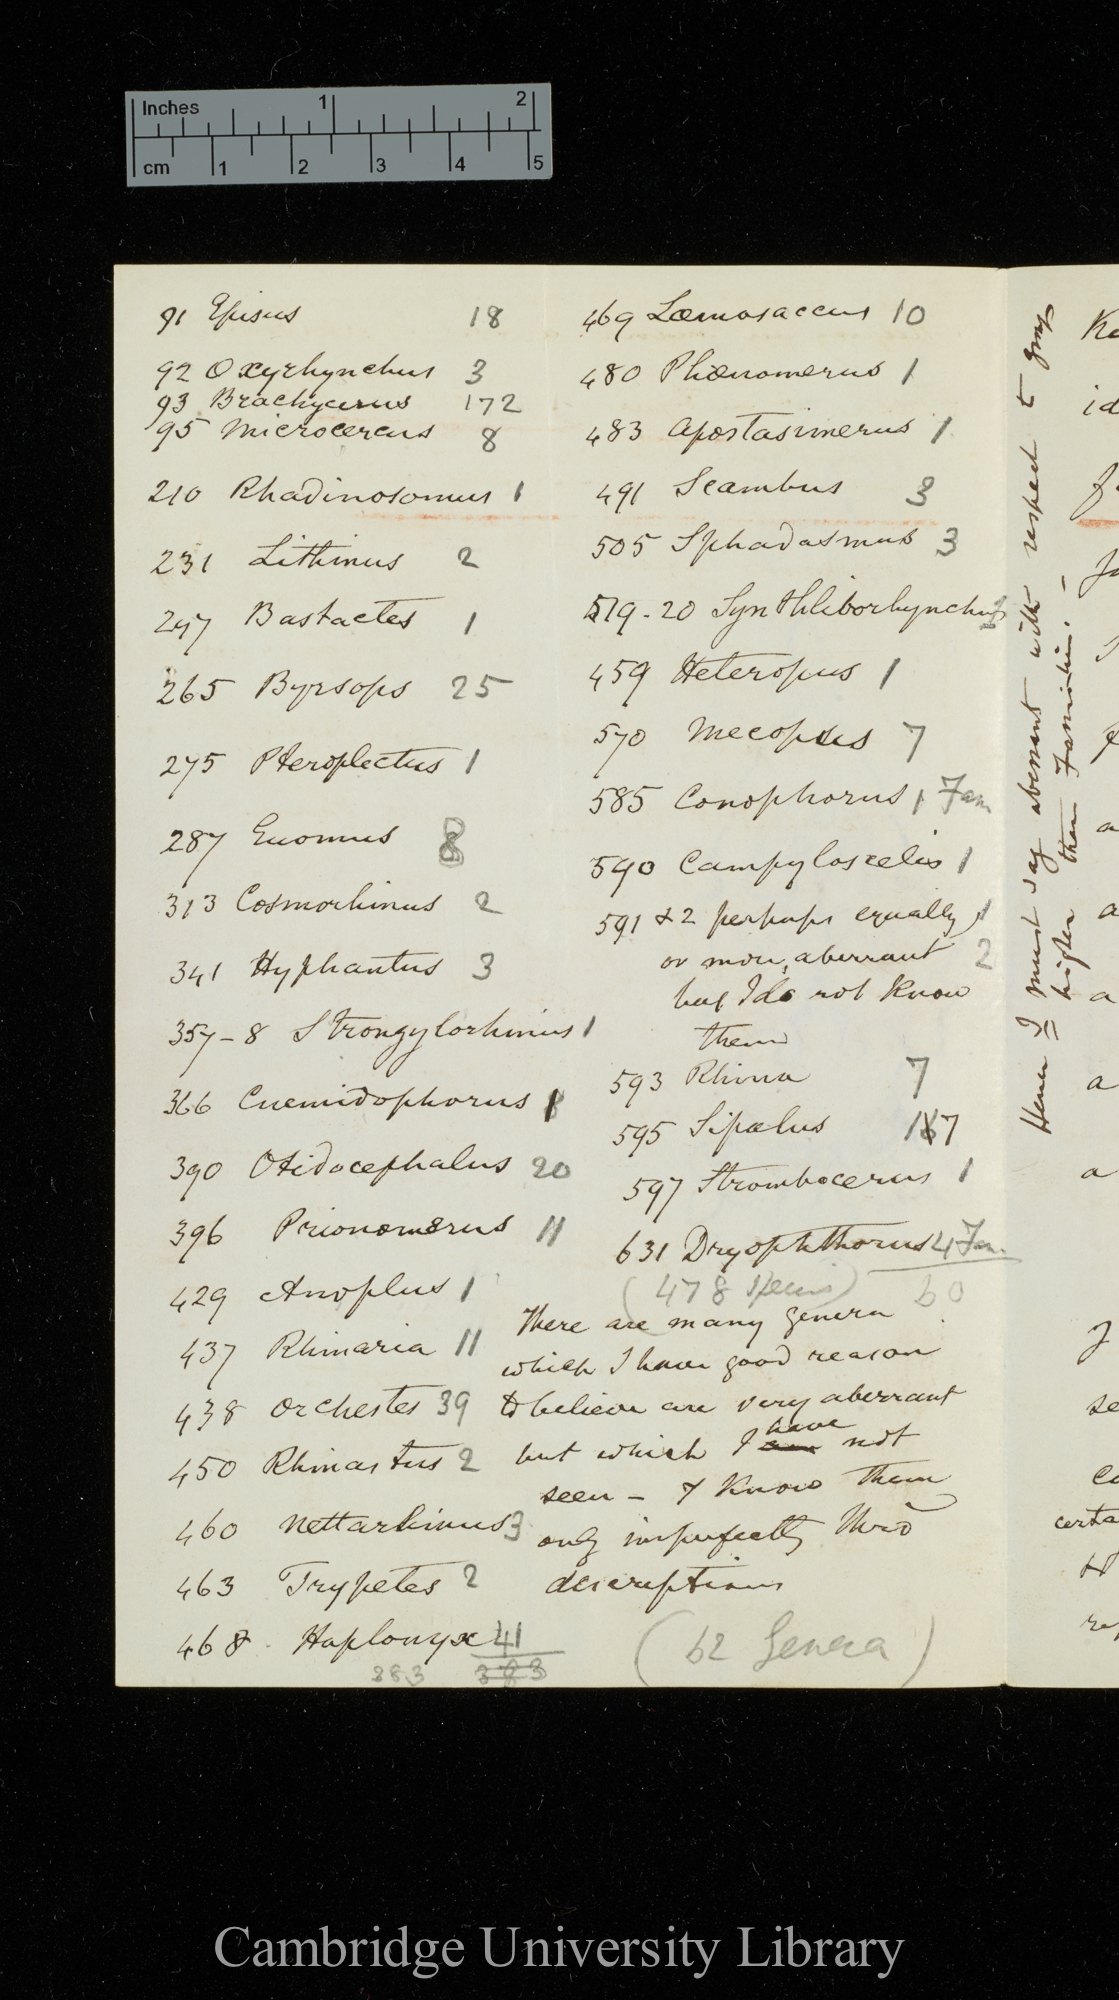 Inches 1 2
cm 1 2 3 4 5
91 Episus 18
92 Oxyrhynchus 3
93 Brachycerus 172
95 Microcerus 8
210 Rhadinosomus 1
231 Lithinus 2
247 Bastactes 1
265 Byrsops 25
275 Pteroplectus 1
287 Euomus 8
313 Cosmorhinus 2
341 Hyphantus 3
357-8 Strongylorhinus 1
366 Cnemidophorus 1
390 Otidocephalus 20
396 Prionomerus 11
429 Anoplus 1
437 Rhinaria 11
438 Orchestes 39
450 Rhinastus 2
460 Nettarhinus 3
463 Trypetes 2
468 Haplonyx 41
383 383
469 Lœmosaccus 10
480 Phænomerus 1
483 Apostasimerus 1
491 Scambus 3
505 Sphadasmus 3
519-20 Synthliborhynchus
459 Heteropus 1
570 Mecopus 7
585 Conophorus 1 Fam
590 Campyloscelis 1
591 & 2 perhaps equally 1
or more, aberrant 2
but I do not know
them
593 Rhina 7
595 Sipalus 17
597 Strombocerus 1
631 Dryophthorus 4 Fam.
(478 species) 60
There are many genera
which I have good reason
to believe are very aberrant
but which I am have not
seen – I know them
only imperfectly thro
descriptions
(62 Genera)
Here I must say aberrant with respect to group
higher than Families. –
id
a
a
a
a
a
se
certa
Cambridge University Library